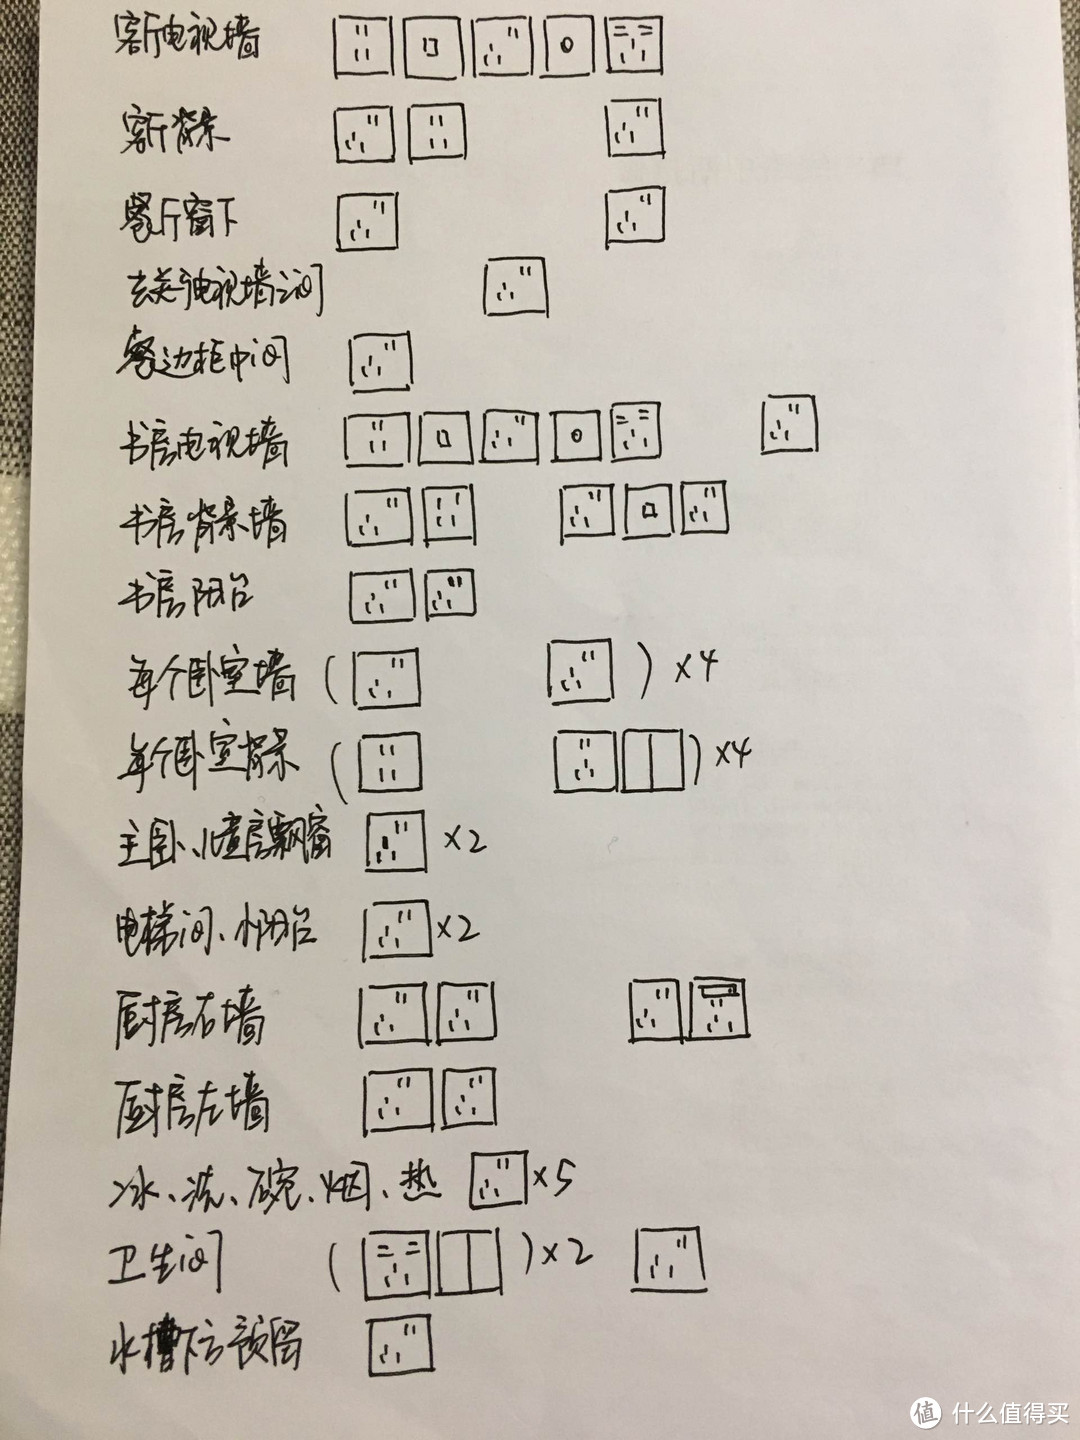 客厅电视墙
客厅背景
餐厅窗下
玄关与电视墙之间
餐边柜中间
书房电视墙
书房背景墙
书房阳台
每个卧室墙 ( ) ×4
每个卧室背景 ( ) ×4
主卧、儿童房飘窗 ×2
电梯间、小阳台 ×2
厨房右墙
厨房左墙
冰、洗、碗、烟、热 ×5
卫生间 ( ) ×2
水槽下方预留
值 什么值得买